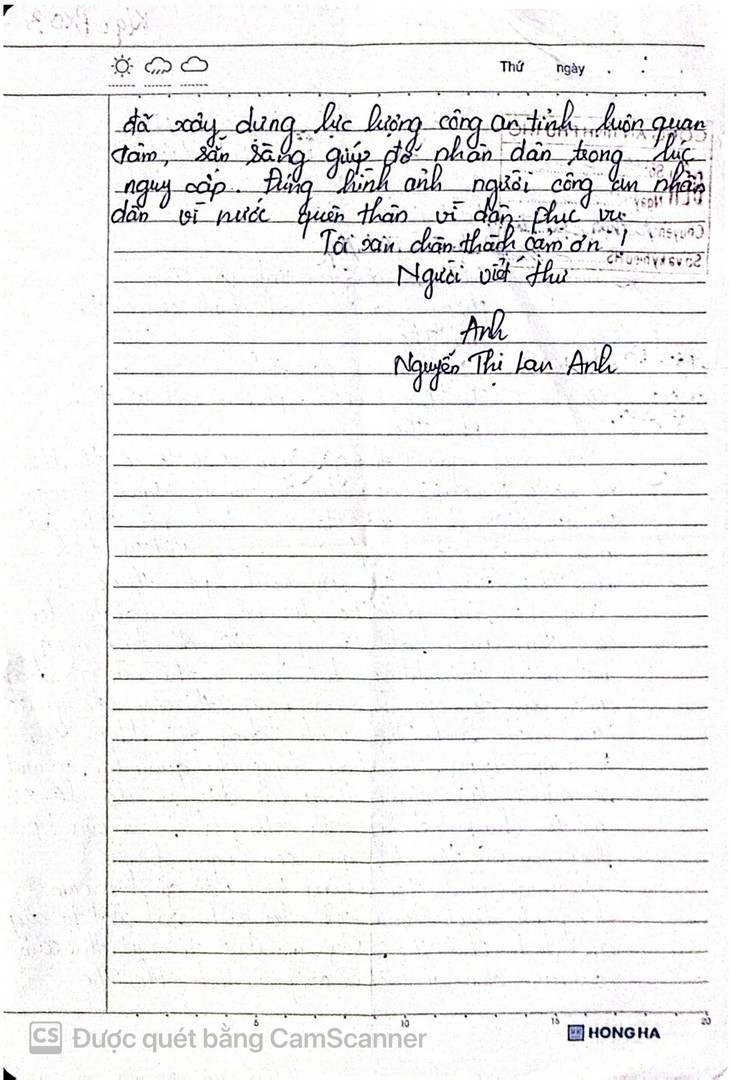 Thứ ngày
đã xây dựng lực lượng công an tỉnh luôn quan
tâm, sẵn sàng giúp đỡ nhân dân trong lúc
nguy cấp. Đúng hình ảnh người công an nhân
dân vì nước quên thân vì dân phục vụ.
Tôi xin chân thành cảm ơn !
Người viết thư
Anh
Nguyễn Thị Lan Anh
5 10 15 20
HONG HA
CS Được quét bằng CamScanner